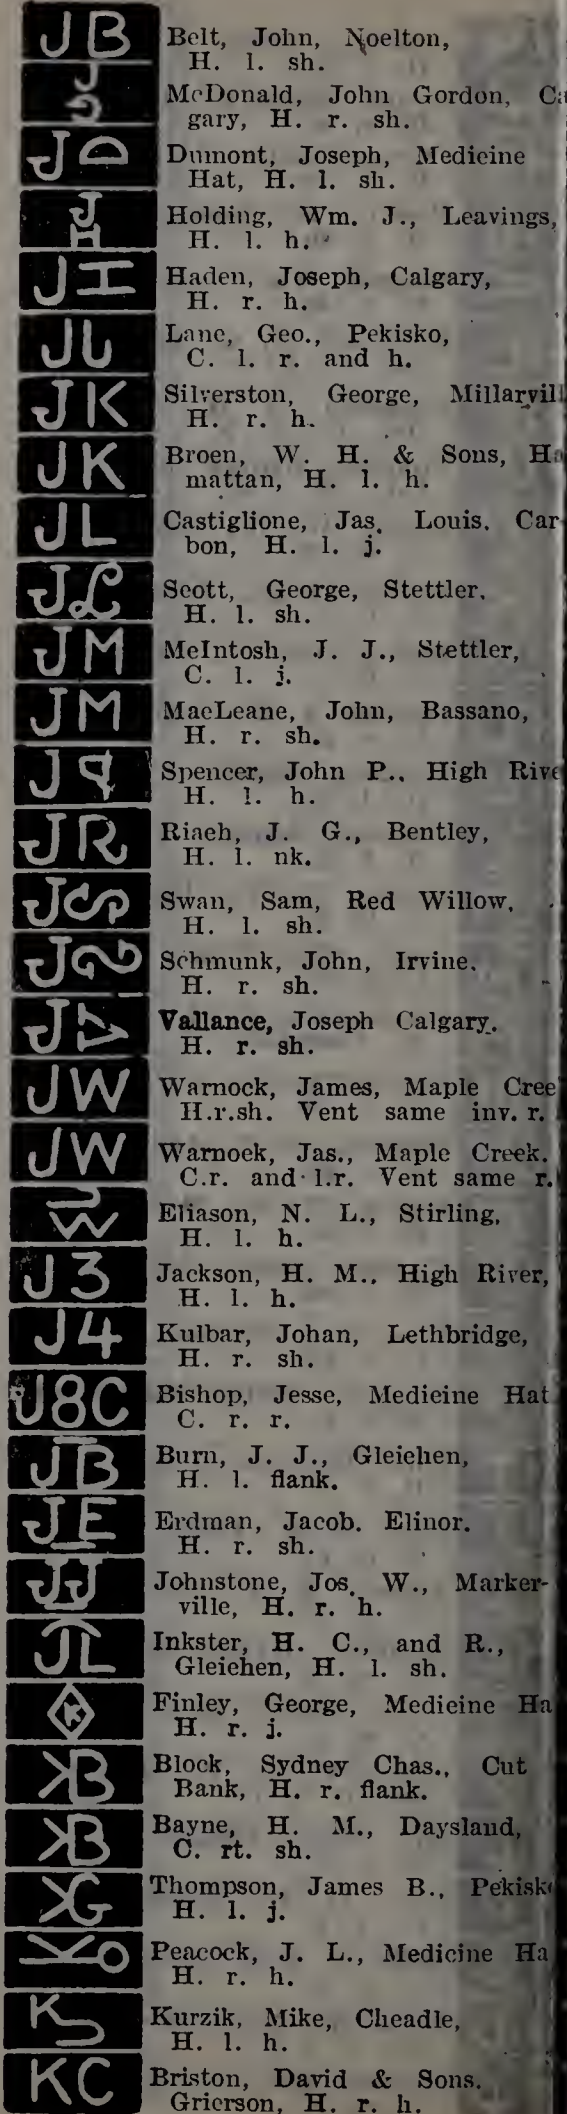 JB Belt, John, Noelton,
H. l. sh.
J McDonald, John Gordon,
gary, H. r. sh.
J Dumont, Joseph, Medicine
Hat, H. l. sh.
J H Holding, Wm. J., Leavings,
H. l. h.
J Haden, Joseph, Calgary,
H. r. h.
J Lane, Geo., Pekisko,
C. l. r. and h.
JK Silverston, George,
H. r. h.
JK Broen, W. H. & Sons,
mattan, H. l. h.
JL Castiglione, Jas. Louis. Car-
bon, H. l. j.
JL Scott, George, Stettler,
H. l. sh.
JM McIntosh, J. J., Stettler,
C. l. j.
JM MacLeane, John, Bassano,
H. r. sh.
J Spencer, John P., High
H. l. h.
JR Riach, J. G., Bentley,
H. l. nk.
J Swan, Sam, Red Willow,
H. l. sh.
J Schmunk, John, Irvine,
H. r. sh.
J Vallance, Joseph Calgary.
H. r. sh.
JW Warnock, James, Maple
H.r.sh. Vent same inv. r.
JW Warnock, Jas., Maple Creek.
C.r. and l.r. Vent same r.
W Eliason, N. L., Stirling,
H. l. h.
J3 Jackson, H. M., High River,
H. l. h.
J4 Kulbar, Johan, Lethbridge,
H. r. sh.
J8C Bishop, Jesse, Medicine Hat
C. r. r.
JB Burn, J. J., Gleichen,
H. l. flank.
JE Erdman, Jacob. Elinor.
H. r. sh.
JJ Johnstone, Jos. W., Marker-
ville, H. r. h.
JL Inkster, H. C., and R.,
Gleichen, H. l. sh.
K Finley, George, Medicine
H. r. j.
KB Block, Sydney Chas., Cut
Bank, H. r. flank.
KB Bayne, H. M., Daysland,
C. rt. sh.
KG Thompson, James B.,
H. l. j.
Peacock, J. L., Medicine
H. r. h.
K Kurzik, Mike, Cheadle,
H. l. h.
KC Briston, David & Sons.
Grierson, H. r. h.